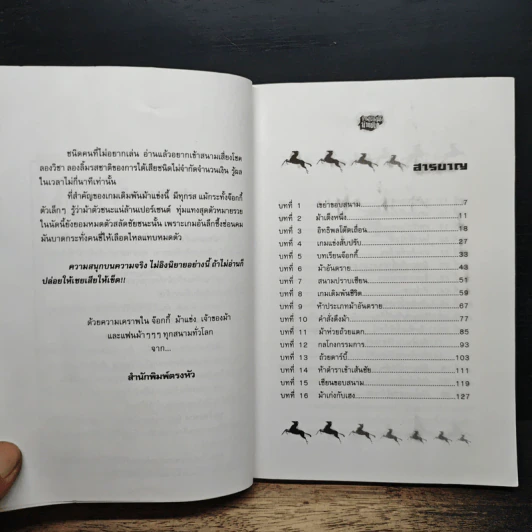 ชนิดคนที่ไม่อยากเล่น อ่านแล้วอยากเข้าสนามเสี่ยงโชค
ลองวิชา ลองลิ้มรสชาติของการได้เสียชนิดไม่จำกัดจำนวนเงิน รู้ผล
ในเวลาไม่กี่นาทีเท่านั้น
ที่สำคัญของเกมเดิมพันม้าแข่งนี้ มีทุกรส แม้กระทั่งจ๊อกกี้
ตัวเล็กๆ รู้ว่าม้าตัวชนะแน่ล้านเปอร์เซนต์ ทุ่มแทงสุดตัวหมายรวย
ในนัดนี้ยังยอมหมดตัวสลัดชัยชนะนั้น เพราะเกมอันลึกซึ้งซ่อนคม
มันบาดกระทั่งคนขี่ให้เลือดไหลแทบหมดตัว
ความสนุกบนความจริง ไม่อิงนิยายอย่างนี้ ถ้าไม่อ่านก็
ปล่อยให้เชยเสียให้เข็ด!!
ด้วยความเคารพใน จ๊อกกี้ ม้าแข่ง เจ้าของม้า
และแฟนม้าๆๆๆ ทุกสนามทั่วโลก
จาก...
สำนักพิมพ์ตรงหัว
สารบาญ
บทที่ 1 เขย่าขอบสนาม 7
บทที่ 2 ม้าเต็งหนึ่ง 11
บทที่ 3 อิทธิพลโต๊ดเถื่อน 18
บทที่ 4 เกมแข่งสับปรับ 27
บทที่ 5 บทเรียนจ๊อกกี้ 33
บทที่ 6 ม้าอันตราย 43
บทที่ 7 สนามปราบเซียน 51
บทที่ 8 เกมเดิมพันชีวิต 59
บทที่ 9 ท้าประเภทม้าอันตราย 67
บทที่ 10 คำสั่งดึงม้า 77
บทที่ 11 ม้าห่วยถ้วยแตก 85
บทที่ 12 กลโกงกรรมการ 93
บทที่ 13 ถ้วยดาร์บี้ 103
บทที่ 14 ท้าตำราเข้าเส้นชัย 111
บทที่ 15 เซียนขอบสนาม 119
บทที่ 16 ม้าเก่งกับเฮง 127